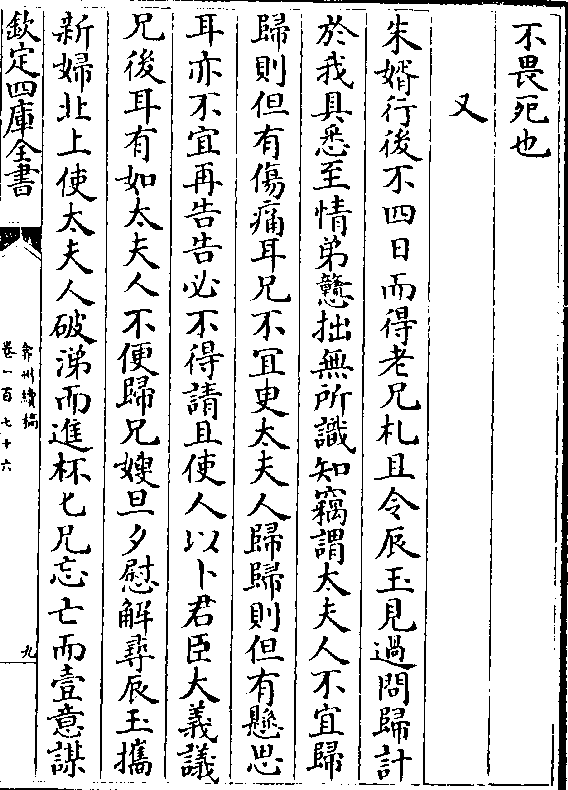 不畏死也
又
朱婿行後不四日而得老兄札且令辰玉見過問歸計
於我具悉至情弟戇拙無所識知竊謂太夫人不宜歸
歸則但有傷痛耳兄不宜更太夫人歸歸則但有懸思
耳亦不宜再告告必不得請且使人以卜君臣大義議
兄後耳有如太夫人不便歸兄嫂旦夕慰解尋辰玉攜
新婦北上使太夫人破涕而進杯匕兄忘亡而壹意謀
欽定四庫全書
弇州續稿
卷一百七十六
九